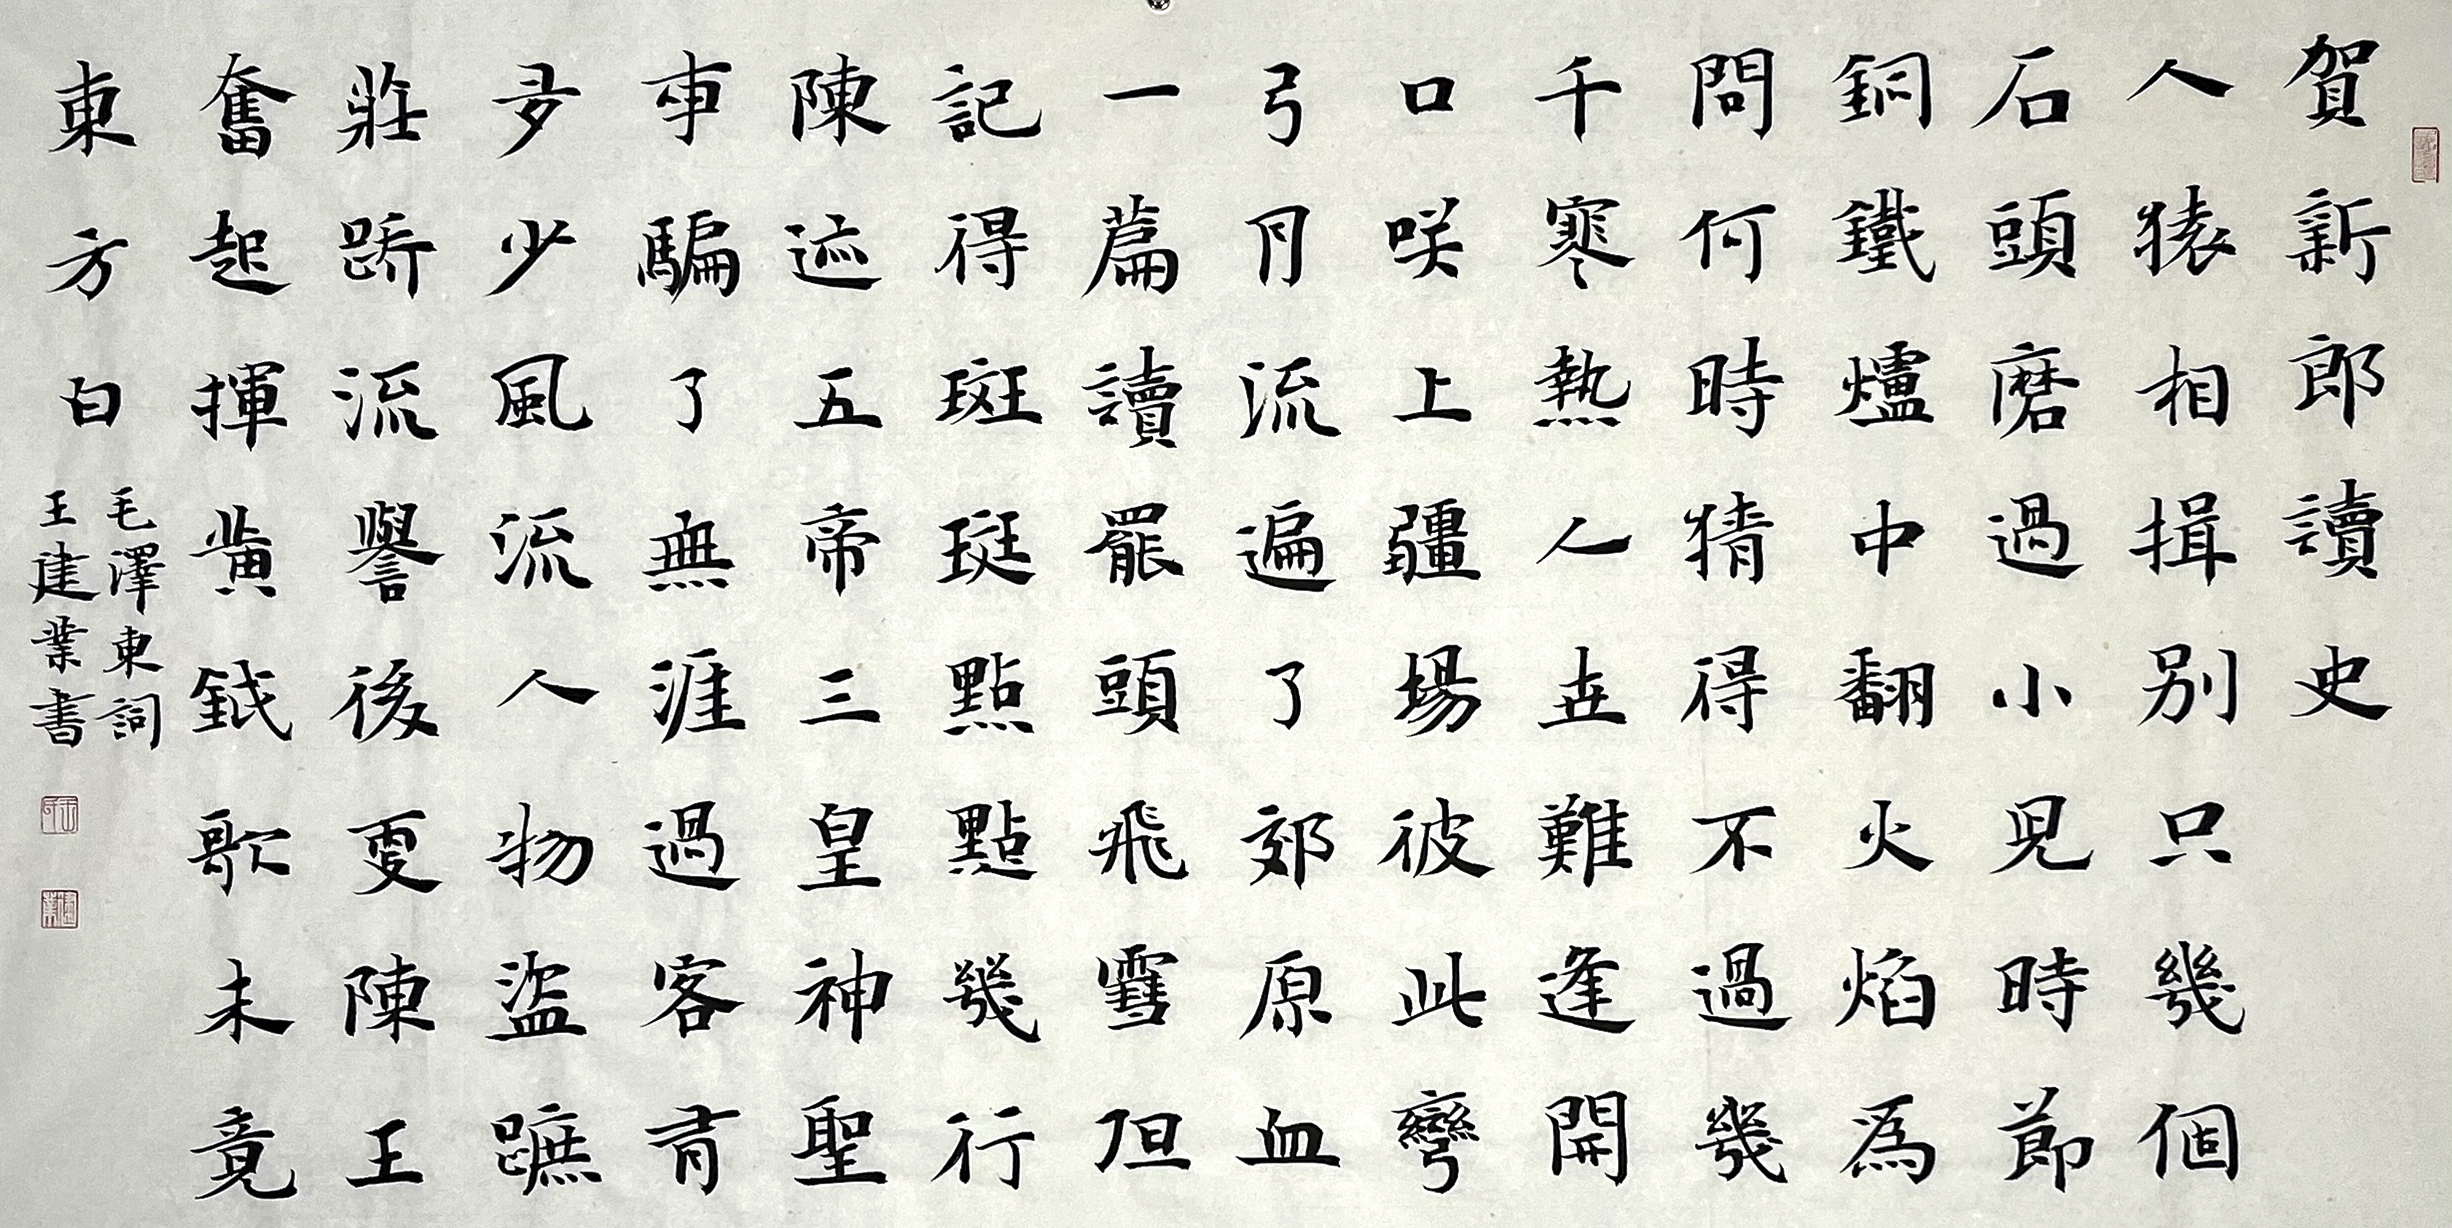 賀新郎讀史
人猿相揖別只幾個
石頭磨過小兒時節
銅鐵爐中翻火焰為
問何時猜得不過幾
千寒熱人世難逢開
口咲上疆場彼此彎
弓月流遍了郊原血
一篇讀罷頭飛雪但
記得斑斑點點幾行
陳迹五帝三皇神聖
事騙了無涯過客有
多少風流人物盜蹠
莊蹻流譽後更陳王
奮起揮黃鉞歌未竟
東方白
毛澤東詞
王建業書